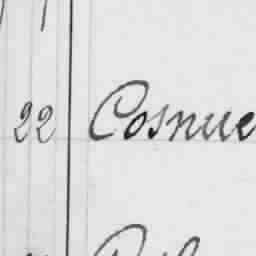 22 Cosnue